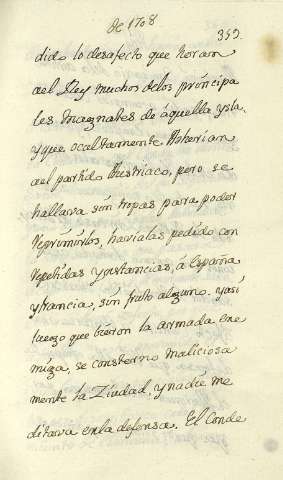 de 1708
353.
dido lo desafecto que heran
ael Rey muchos delos principa
les magnates de aquella ysla
y que ocaltamente Adherian
ael partido Austriaco, pero se
hallava sin tropas para poder
reprimirlos, havialas pedido con
repetidas ynstancias, â España
y francia, sin fruto alguno. y asi
luego que vieron la armada ene
miga, se consterno maliciosa
mente la Ziudad, y nadie me
ditava enla defensa. El Conde